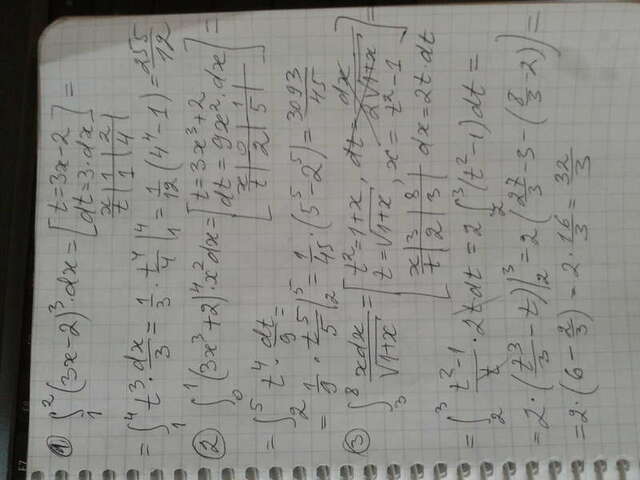 ① ∫₁² (3x-2)³·dx = [t=3x-2, dt=3·dx, x|1|2, t|1|4] =
= ∫₁⁴ t³·dx/3 = 1/3·t⁴/4|₁⁴ = 1/12(4⁴-1) = 255/12
② ∫₀¹ (3x³+2)⁴x²dx = [t=3x³+2, dt=9x²dx, x|0|1, t|2|5] =
= ∫₂⁵ t⁴·dt/9 =
= 1/9·t⁵/5|₂⁵ = 1/45·(5⁵-2⁵) = 3093/45
③ ∫₃⁸ xdx/√(1+x) = [t²=1+x, t=√(1+x), x=t²-1, x|3|8, t|2|3, dx=2tdt] =
= ∫₂³ (t²-1)/t·2tdt = 2∫₂³(t²-1)dt =
= 2·(t³/3-t)|₂³ = 2(27/3-3-(8/3-2)) =
= 2·(6-2/3) = 2·16/3 = 32/3